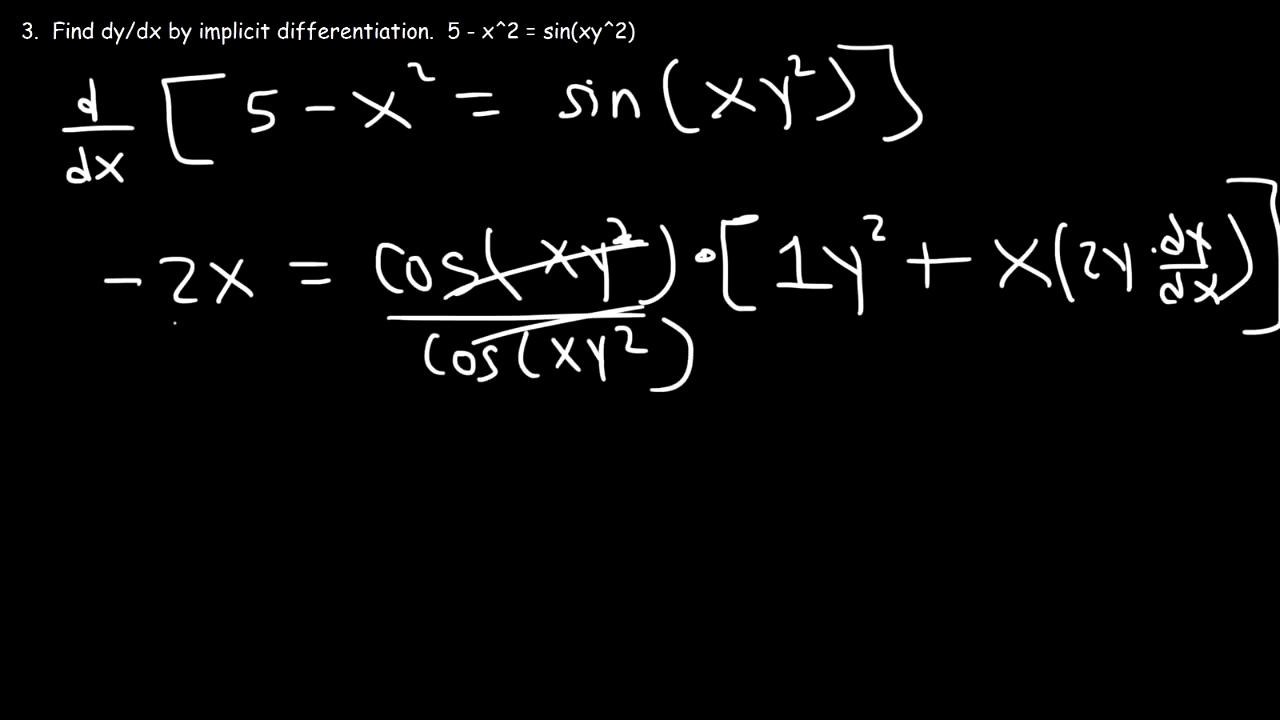 3. Find dy/dx by implicit differentiation. 5 - x^2 = sin(xy^2)
d/dx [ 5 - x² = sin(xy²) ]
-2x = cos(xy²) · [ 1y² + x(2y · dy/dx) ]
cos(xy²)